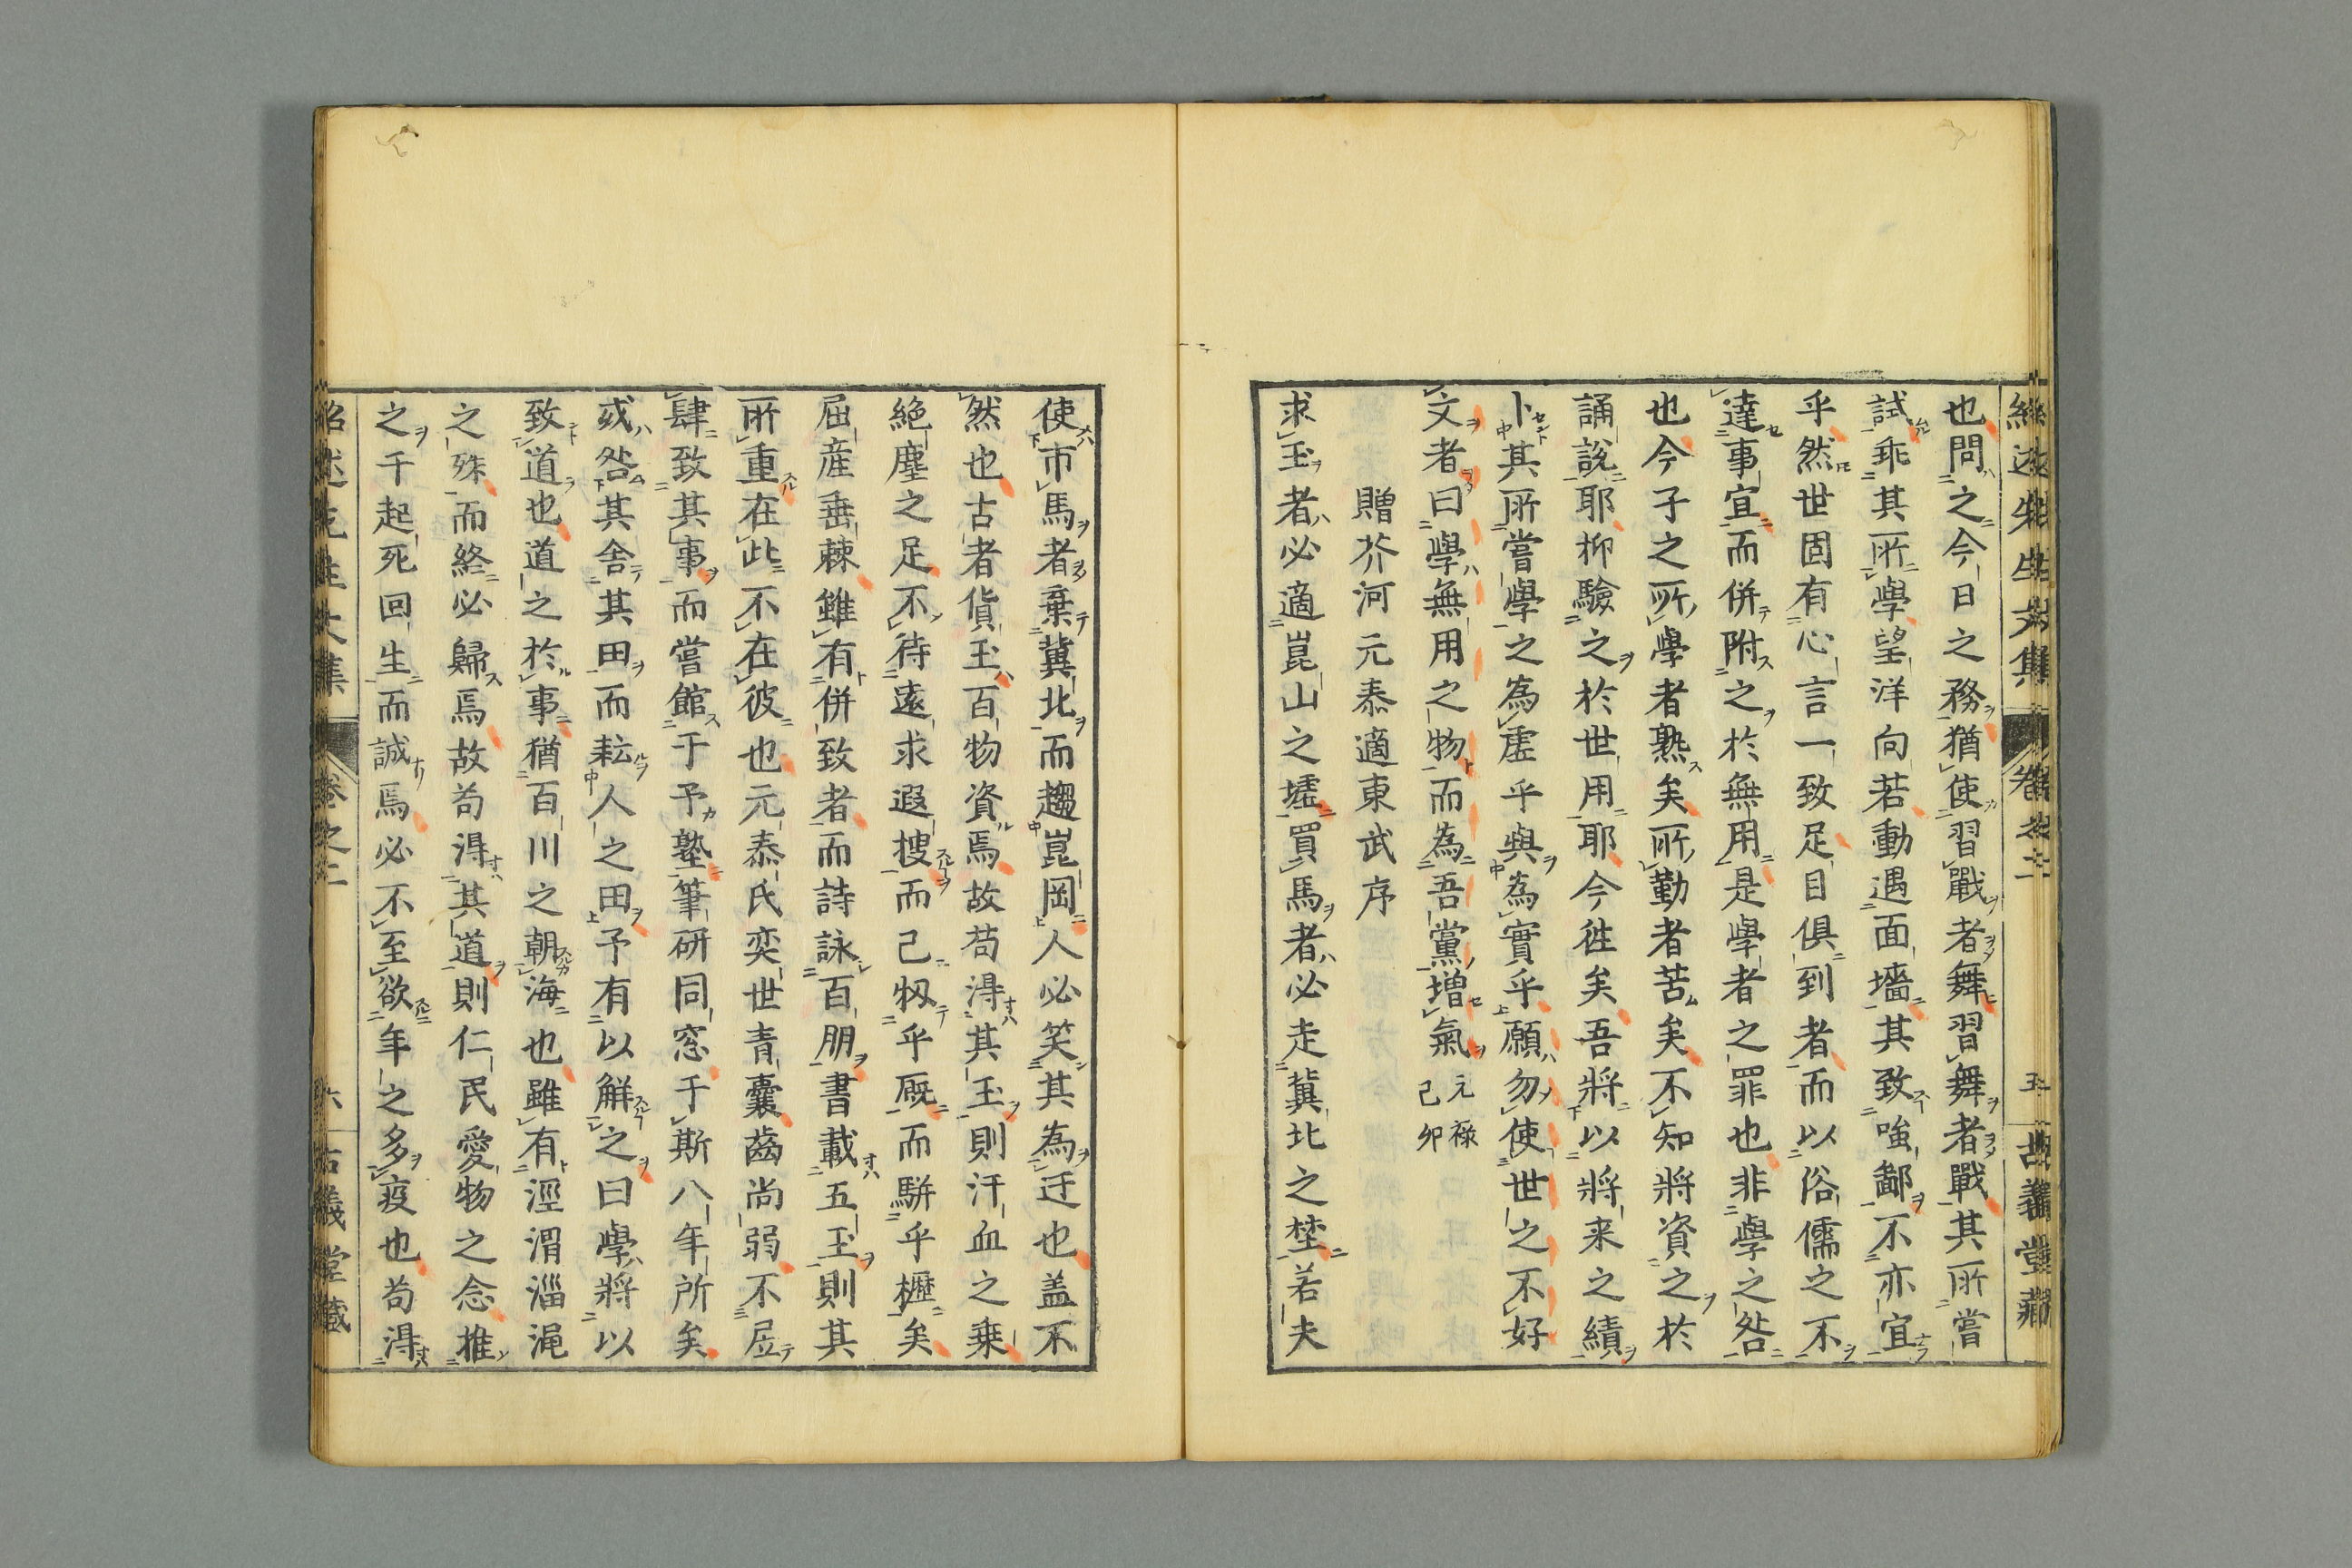 紹述先生文集 卷之二 五 古義堂藏
也問之今日之務猶使習戰者舞習舞者戰其所嘗
試乖其所學望洋向若動遇面墻其致嗤鄙不亦宜
乎然世固有心言一致足目俱到者而以俗儒之不
達事宜而併附之於無用是學者之罪也非學之咎
也今子之所學者熟矣所勤者苦矣不知將資之於
誦說耶抑驗之於世用耶今徃矣吾將以將来之績
卜其所嘗學之為虛乎與為實乎願勿使世之不好
文者曰學無用之物而為吾黨增氣元禄己卯
贈芥河元泰適東武序
求玉者必適崑山之墟買馬者必走冀北之埜若夫
使市馬者棄冀北而趨崑岡人必笑其為迂也盖不
然也古者貨玉百物資焉故苟淂其玉則汗血之乗
絕塵之足不待遠求遐搜而己牣乎厩而駢乎櫪矣
屈産垂棘雖有併致者而詩詠百朋書載五玉則其
所重在此不在彼也元泰氏奕世青囊齒尚弱不屑
肆致其事而嘗館于予塾筆研同窓于斯八年所矣
或咎其舍其田而耘人之田予有以觧之曰學將以
致道也道之於事猶百川之朝海也雖有涇渭淄澠
之殊而終必歸焉故苟淂其道則仁民愛物之念推
之千起死回生而誠焉必不至欲年之多疫也苟淂
紹述先生文集 卷之二 六 古義堂藏